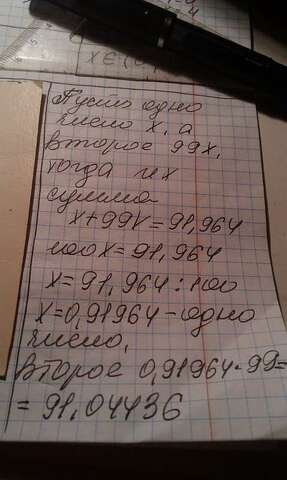 x∈(
Пусть одно
число x, а
второе 99x,
тогда их
сумма
x+99x=91,964
100x=91,964
x=91,964:100
x=0,91964-одно
число,
второе 0,91964·99=
=91,04436